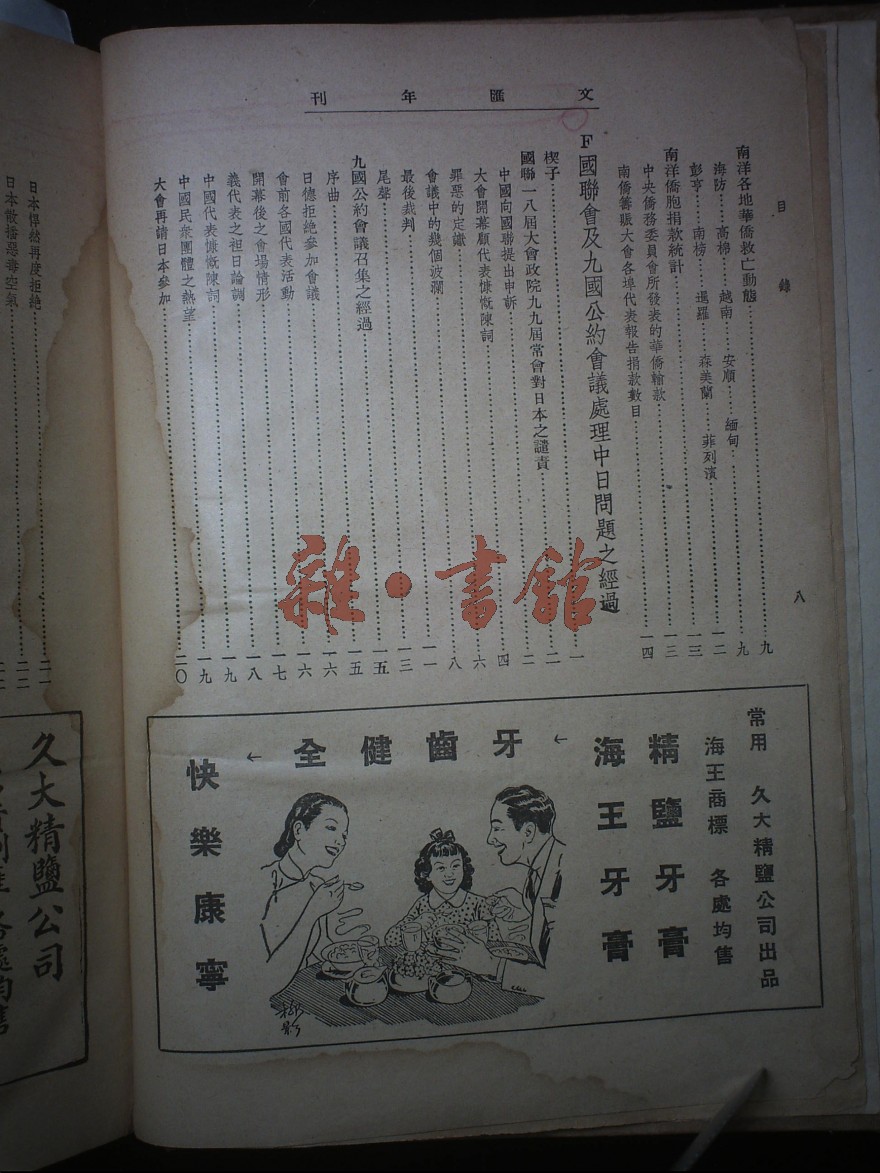 文匯年刊
目錄
八
南洋各地華僑救亡動態……九
海防……高棉……越南……安順……緬甸……九
彭亨……南榜……暹羅……森美蘭……菲列濱……一二
南洋僑胞捐款統計……一三
中央僑務委員會所發表的華僑輸款……一三
南僑籌賑大會各埠代表報告捐款數目……一四
F國聯會及九國公約會議處理中日問題之經過
楔子……一
國聯一八屆大會政院九九屆常會對日本之譴責……二
中國向國聯提出申訴……二
大會開幕顧代表慷慨陳詞……四
罪惡的定讞……六
會議中的幾個波瀾……八
最後裁判……一一
尾聲……一三
九國公約會議召集之經過……一五
序曲……一五
日德拒絕參加會議……一六
會前各國代表活動……一六
開幕後之會場情形……一七
義代表之袒日論調……一八
中國代表慷慨陳詞……一九
中國民衆團體之熱望……一九
大會再請日本參加……二〇
日本悍然再度拒絕……二一
日本散播惡毒空氣……二二
常用 久大精鹽公司出品
海王商標 各處均售
精鹽牙膏
海王牙膏
牙齒健全
快樂康寧
久大精鹽公司
雜·書館